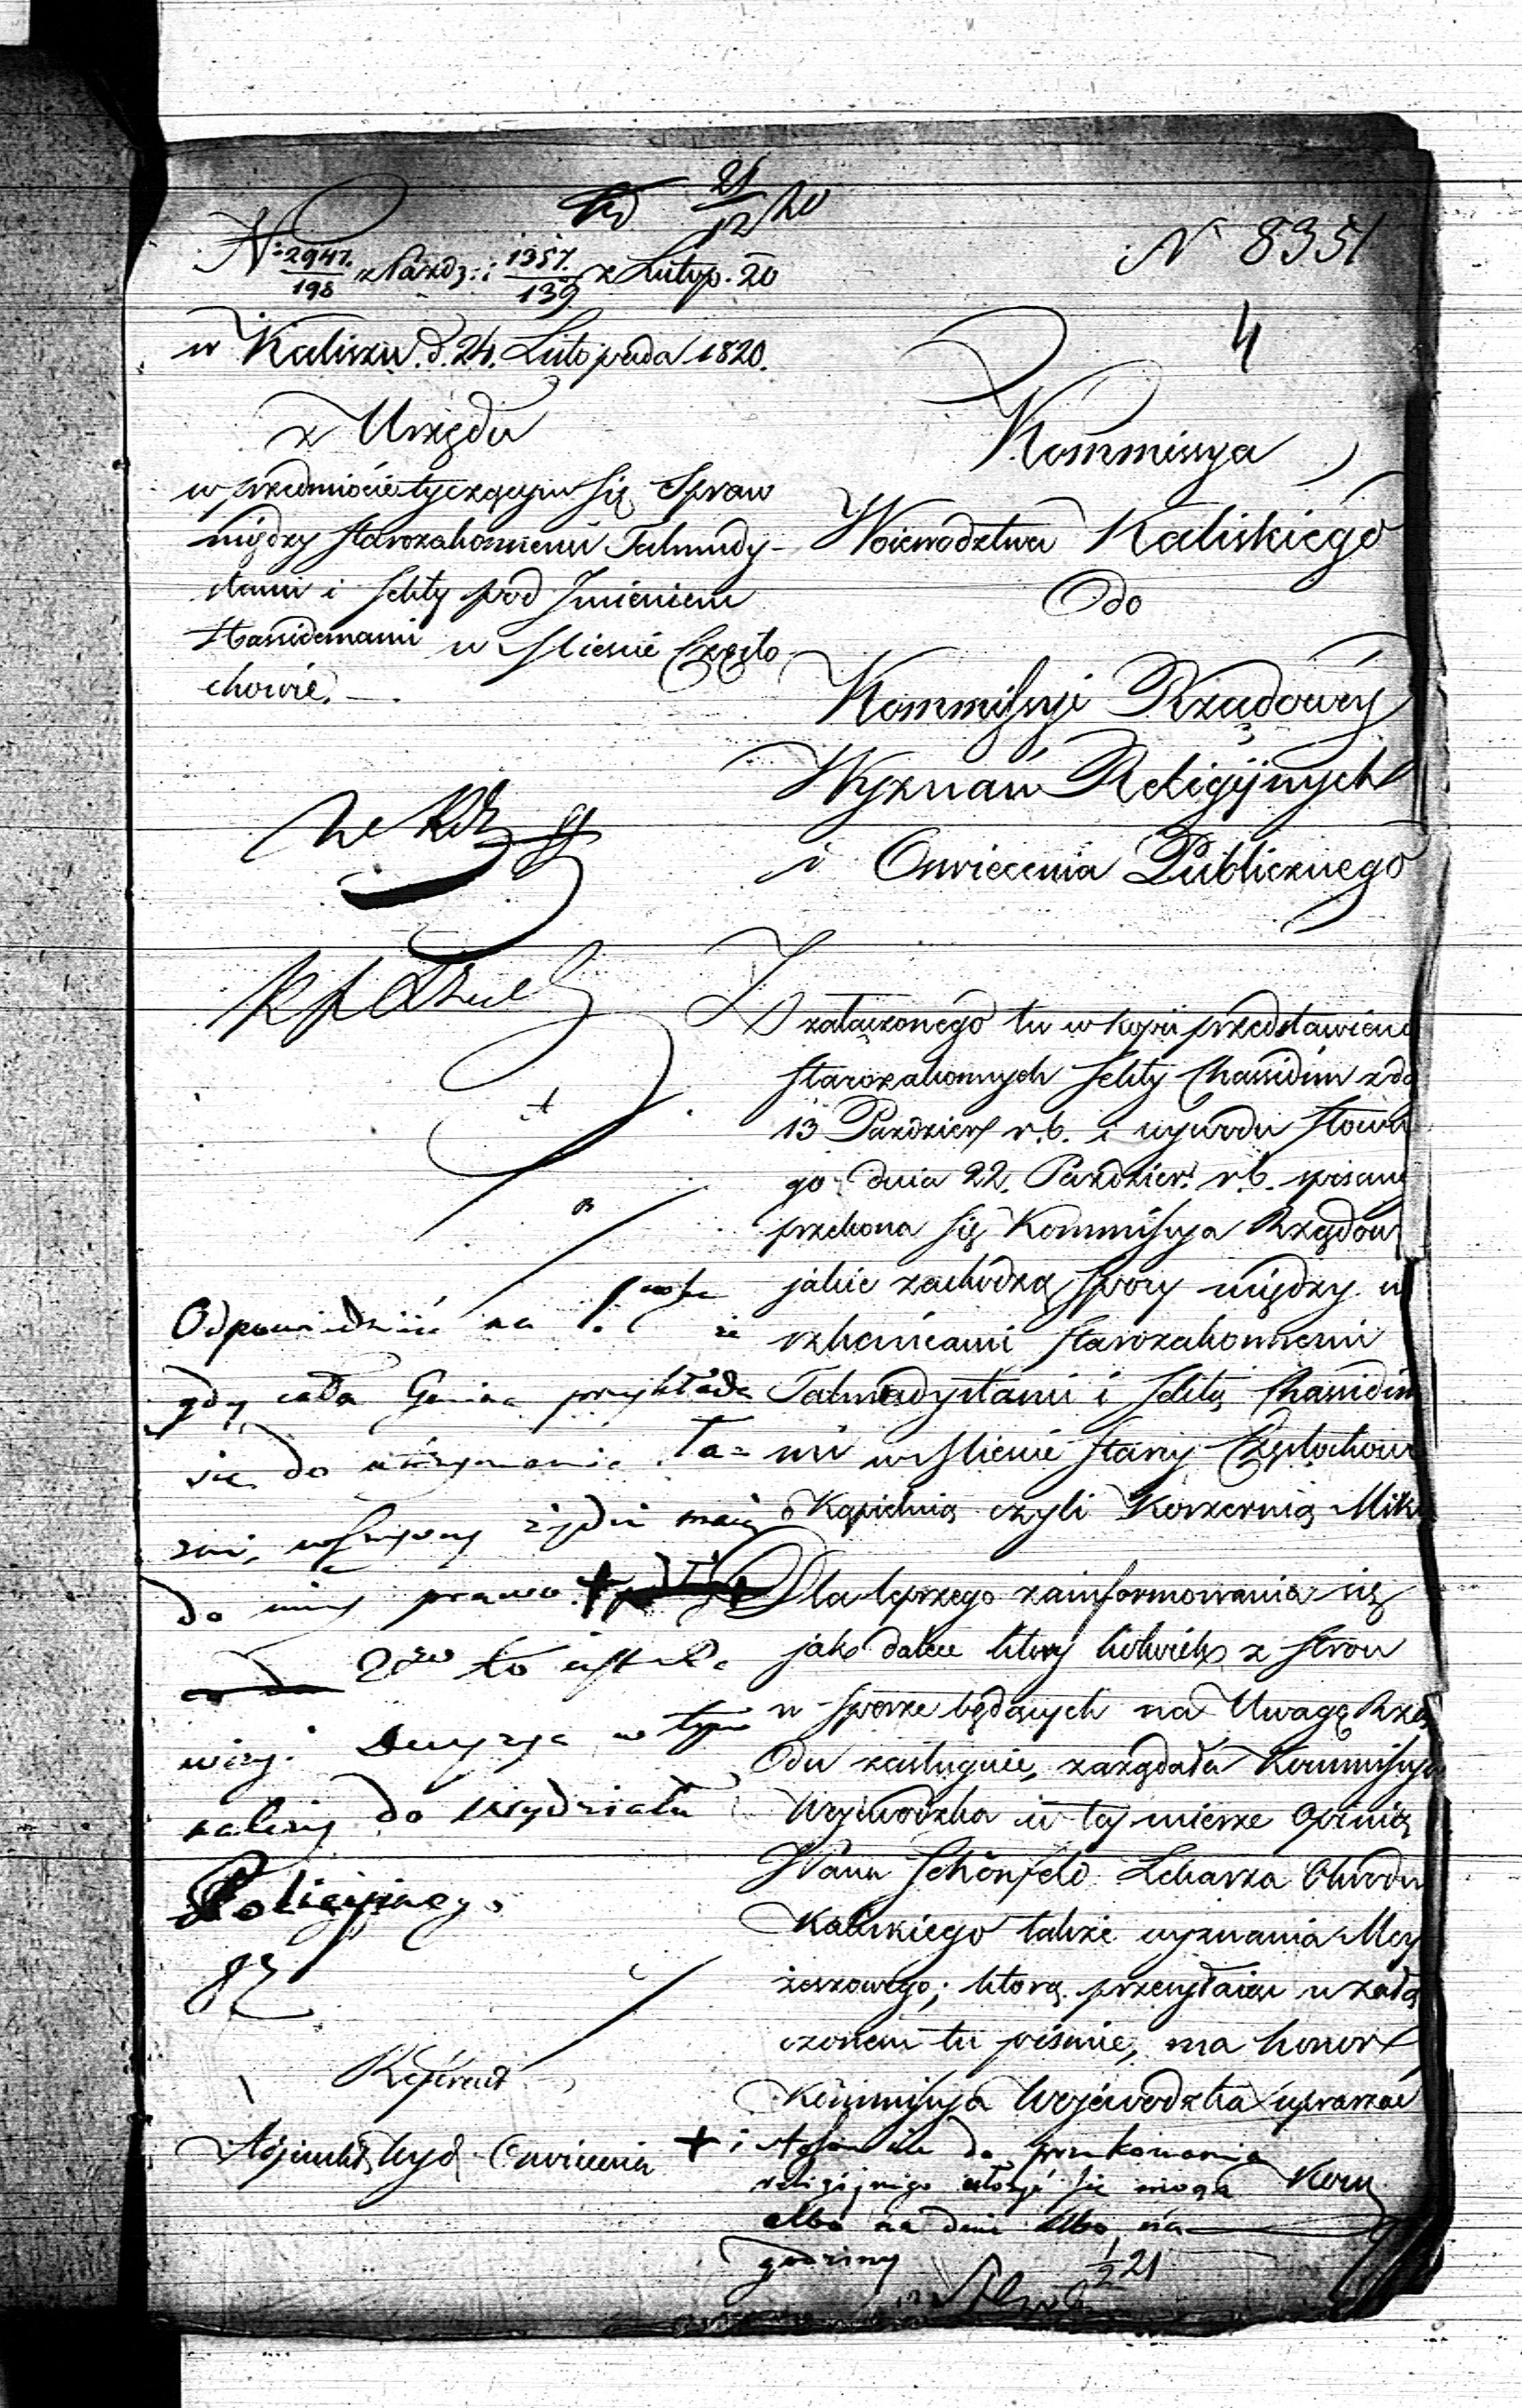 21/12 20
N 8351
N: 2947./198 z Pazdz: i 1357./139 z Listop. 20
4
w Kaliszu d. 24. Listopada 1820.
z Urzędu
w przedmiocie tyczącym się Spraw
między starozakonnemi Talmudy-
stami i sekty pod Imieniem
Hassidemami w Mieście Często
chowie. —
Kommissya
Woiewodztwa Kaliskiego
Do
Kommissyi Rządowey
Wyznań Religiynych
i Oswiecenia Publicznego
Z załączonego tu w kopii przedstawienia
starozakonnych sekty Chassidim z da
13 Pazdzier r. b. i wywodu słowne
go dnia 22. Pazdzier: r. b. spisane
przekona się Kommissya Rządow
jakie zachodzą spory między
szkańcami starozakonnemi
Talmudystami i sektą Chassidim
mi w Mieście starey Częstochow
o Kąpielnią czyli Koszernią Mik
Dla lepszego zainformowania się
jak dalece który kolwiek z stron
w sporze będących na Uwagę Rzą
du zasługuie, zażądała Kommissya
Woiewodzka w tey mierze Opinią
Pana Schönfeld Lekarza Obwodu
Kaliskiego także wyznania Moy
żeszowego; którą przesyłaiąc w załą
czonem tu piśmie, ma honor
Kommissya Woiewodzka upraszać
Kom
Odpowiedzieć na że
gdy cała Gmina przykłada
się do utrzymania Ła=
zni, wszyscy żydzi maią
do niey prawo +
2do to
więc Decyzya w tym
należy do Wydziału
Policyinego
Referent
Adjunkt Wyd. Oswiecenia
+ i stosownie do przekonania
religijnego ułożyć się mogą
albo na dnie albo na
godziny
1/2 21